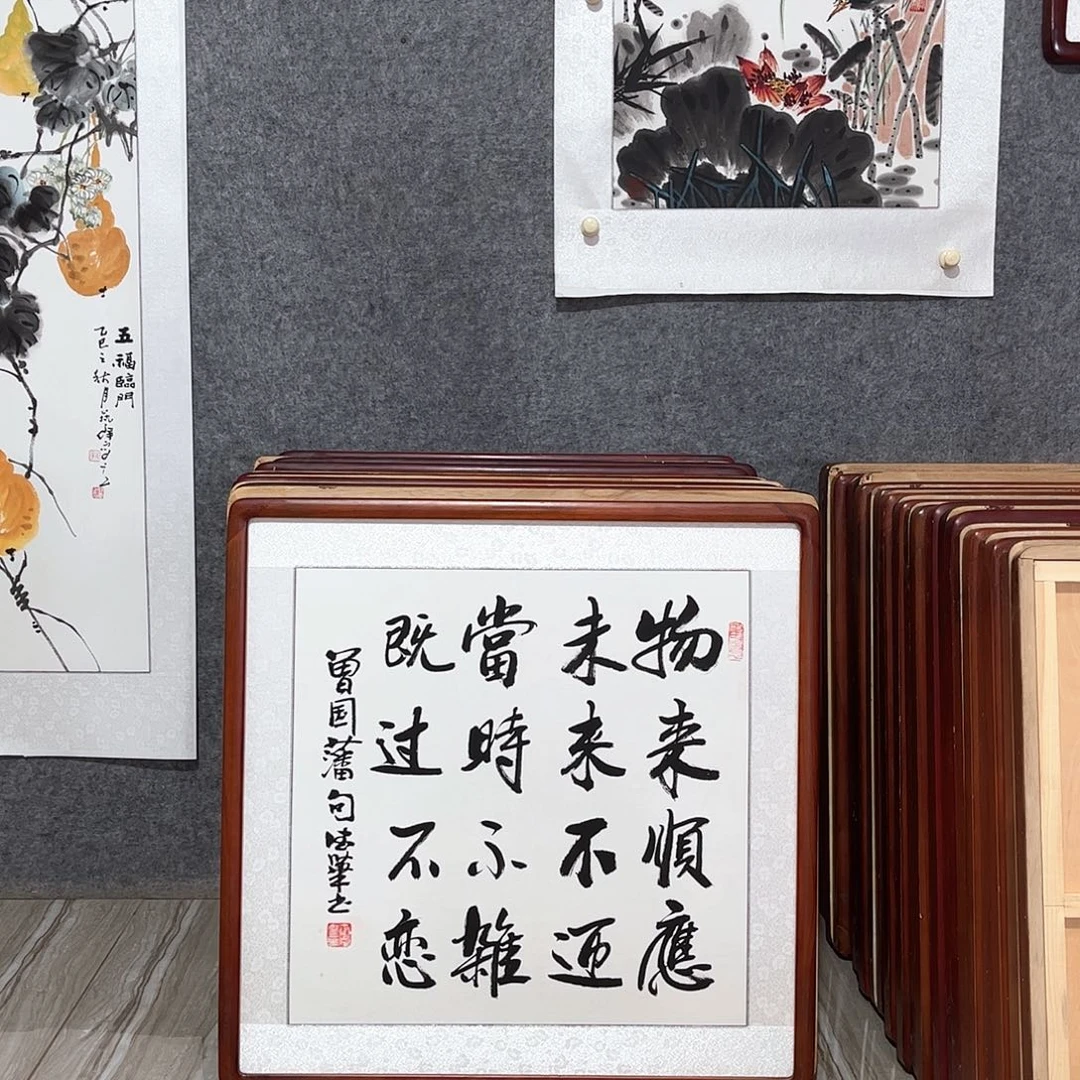 物来順應
未来不迎
當時不雜
既过不恋
曾国藩句 華书
五福臨門
乙巳之秋月